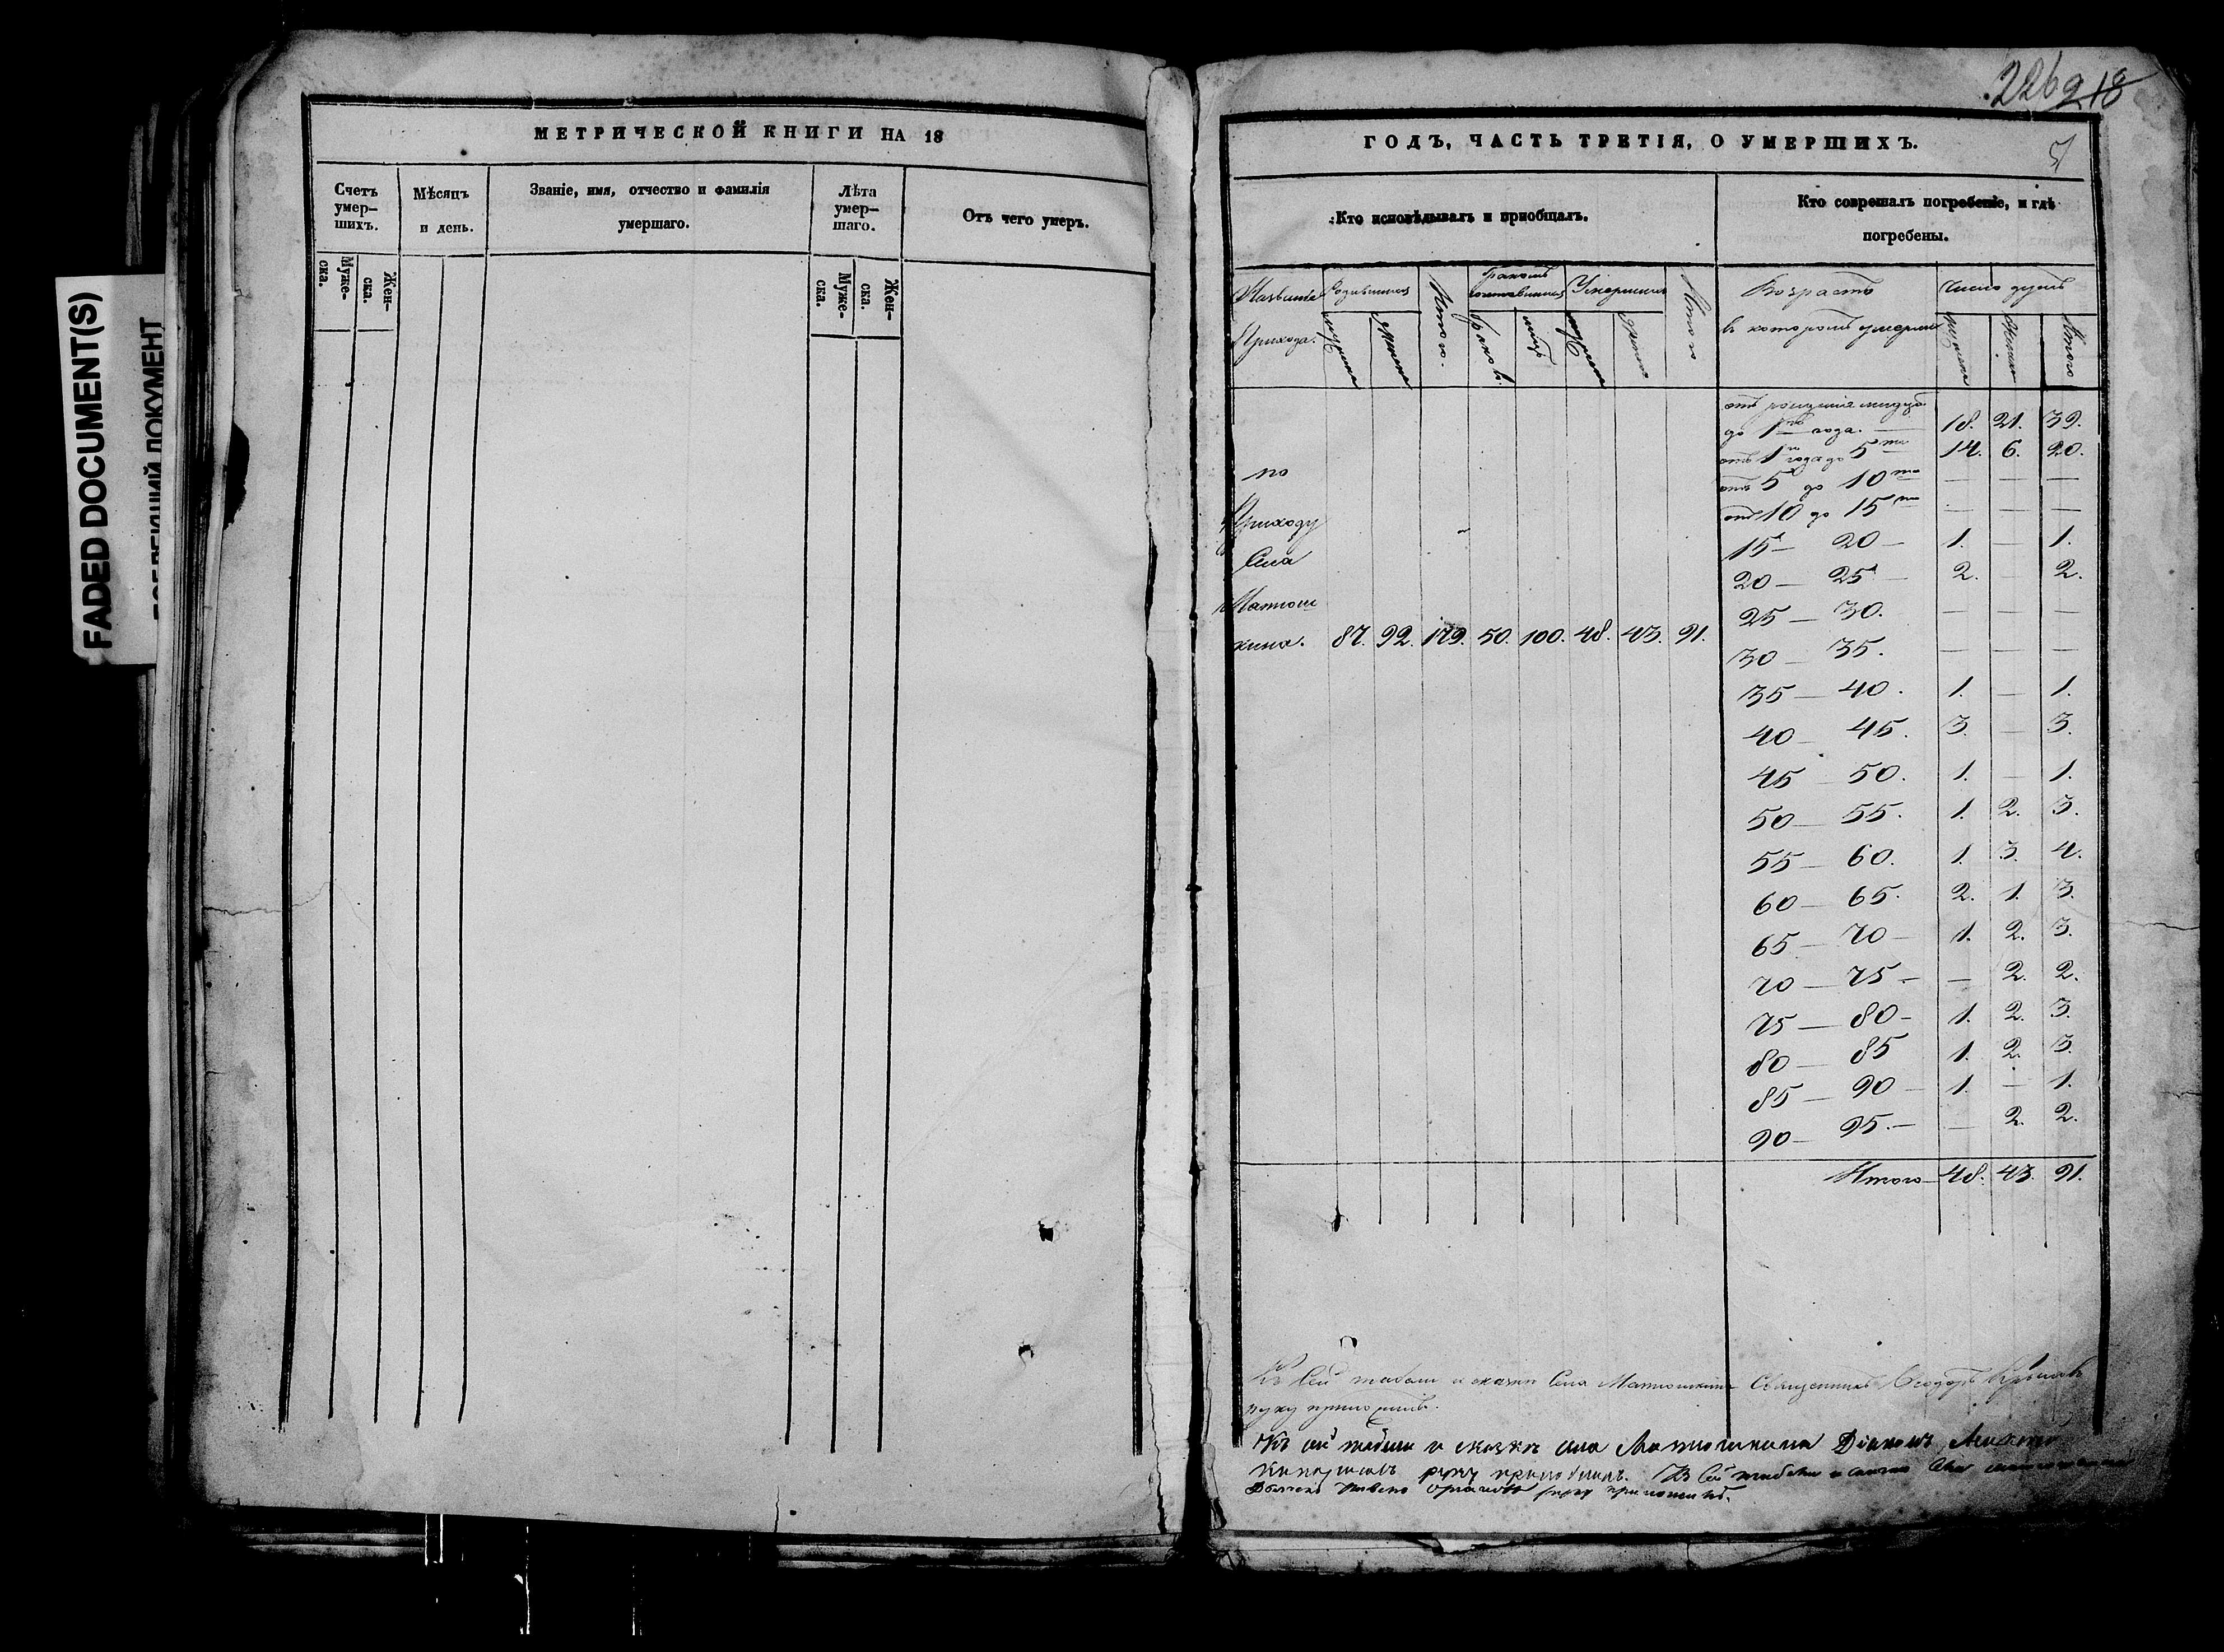 FADED DOCUMENT(S)
МЕТРИЧЕСКОЙ КНИГИ НА 18
Счетъ умер-
шихъ.
Мѣсяцъ
и день.
Званіе, имя, отчество и фамилія
умершаго.
Лѣта
умер-
шаго.
Отъ чего умеръ.
Муже-
ска.
Жен-
ска.
Муже-
ска.
Жен-
ска.
226 218
ГОДЪ, ЧАСТЬ ТРЕТІЯ, О УМЕРШИХЪ.
Кто исповѣдывалъ и пріобщалъ.
Кто совершалъ погребеніе, и гдѣ
погребены.
Названіе
Прихода.
Родившихся
Итого.
Бракомъ
Умершихъ
Итого
браковъ.
Возрастъ
въ которомъ умерли
Число душъ
Итого
отъ рожденія
до 1го года. — 18. 21. 39.
отъ 1го года до 5ти 14. 6. 20.
отъ 5 до 10ти — — —
отъ 10 до 15ти — — —
15 — 20 — 1. — 1.
20 — 25 — 2. — 2.
25 — 30. — — —
30 — 35. — — —
35 — 40. 1. — 1.
40 — 45. 3. — 3.
45 — 50. 1. — 1.
50 — 55. 1. 2. 3.
55 — 60. 1. 3. 4.
60 — 65. 2. 1. 3.
65 — 70 — 1. 2. 3.
70 — 75 — — 2. 2.
75 — 80 — 1. 2. 3.
80 — 85 1. 2. 3.
85 — 90 — 1. — 1.
90 — 95. — — 2. 2.
Итого — 48. 43. 91.
по
Приходу
Села
Матюш
кина. 87. 92. 179. 50. 100. 48. 43. 91.
Къ сей табели и сказки Села Матюшкина Священникъ Ѳеодоръ
руку приложилъ.
Къ сей табели и сказкѣ села Матюшкина Діаконъ
руку приложилъ. Къ Сей табели и сказки Села
руку приложилъ.